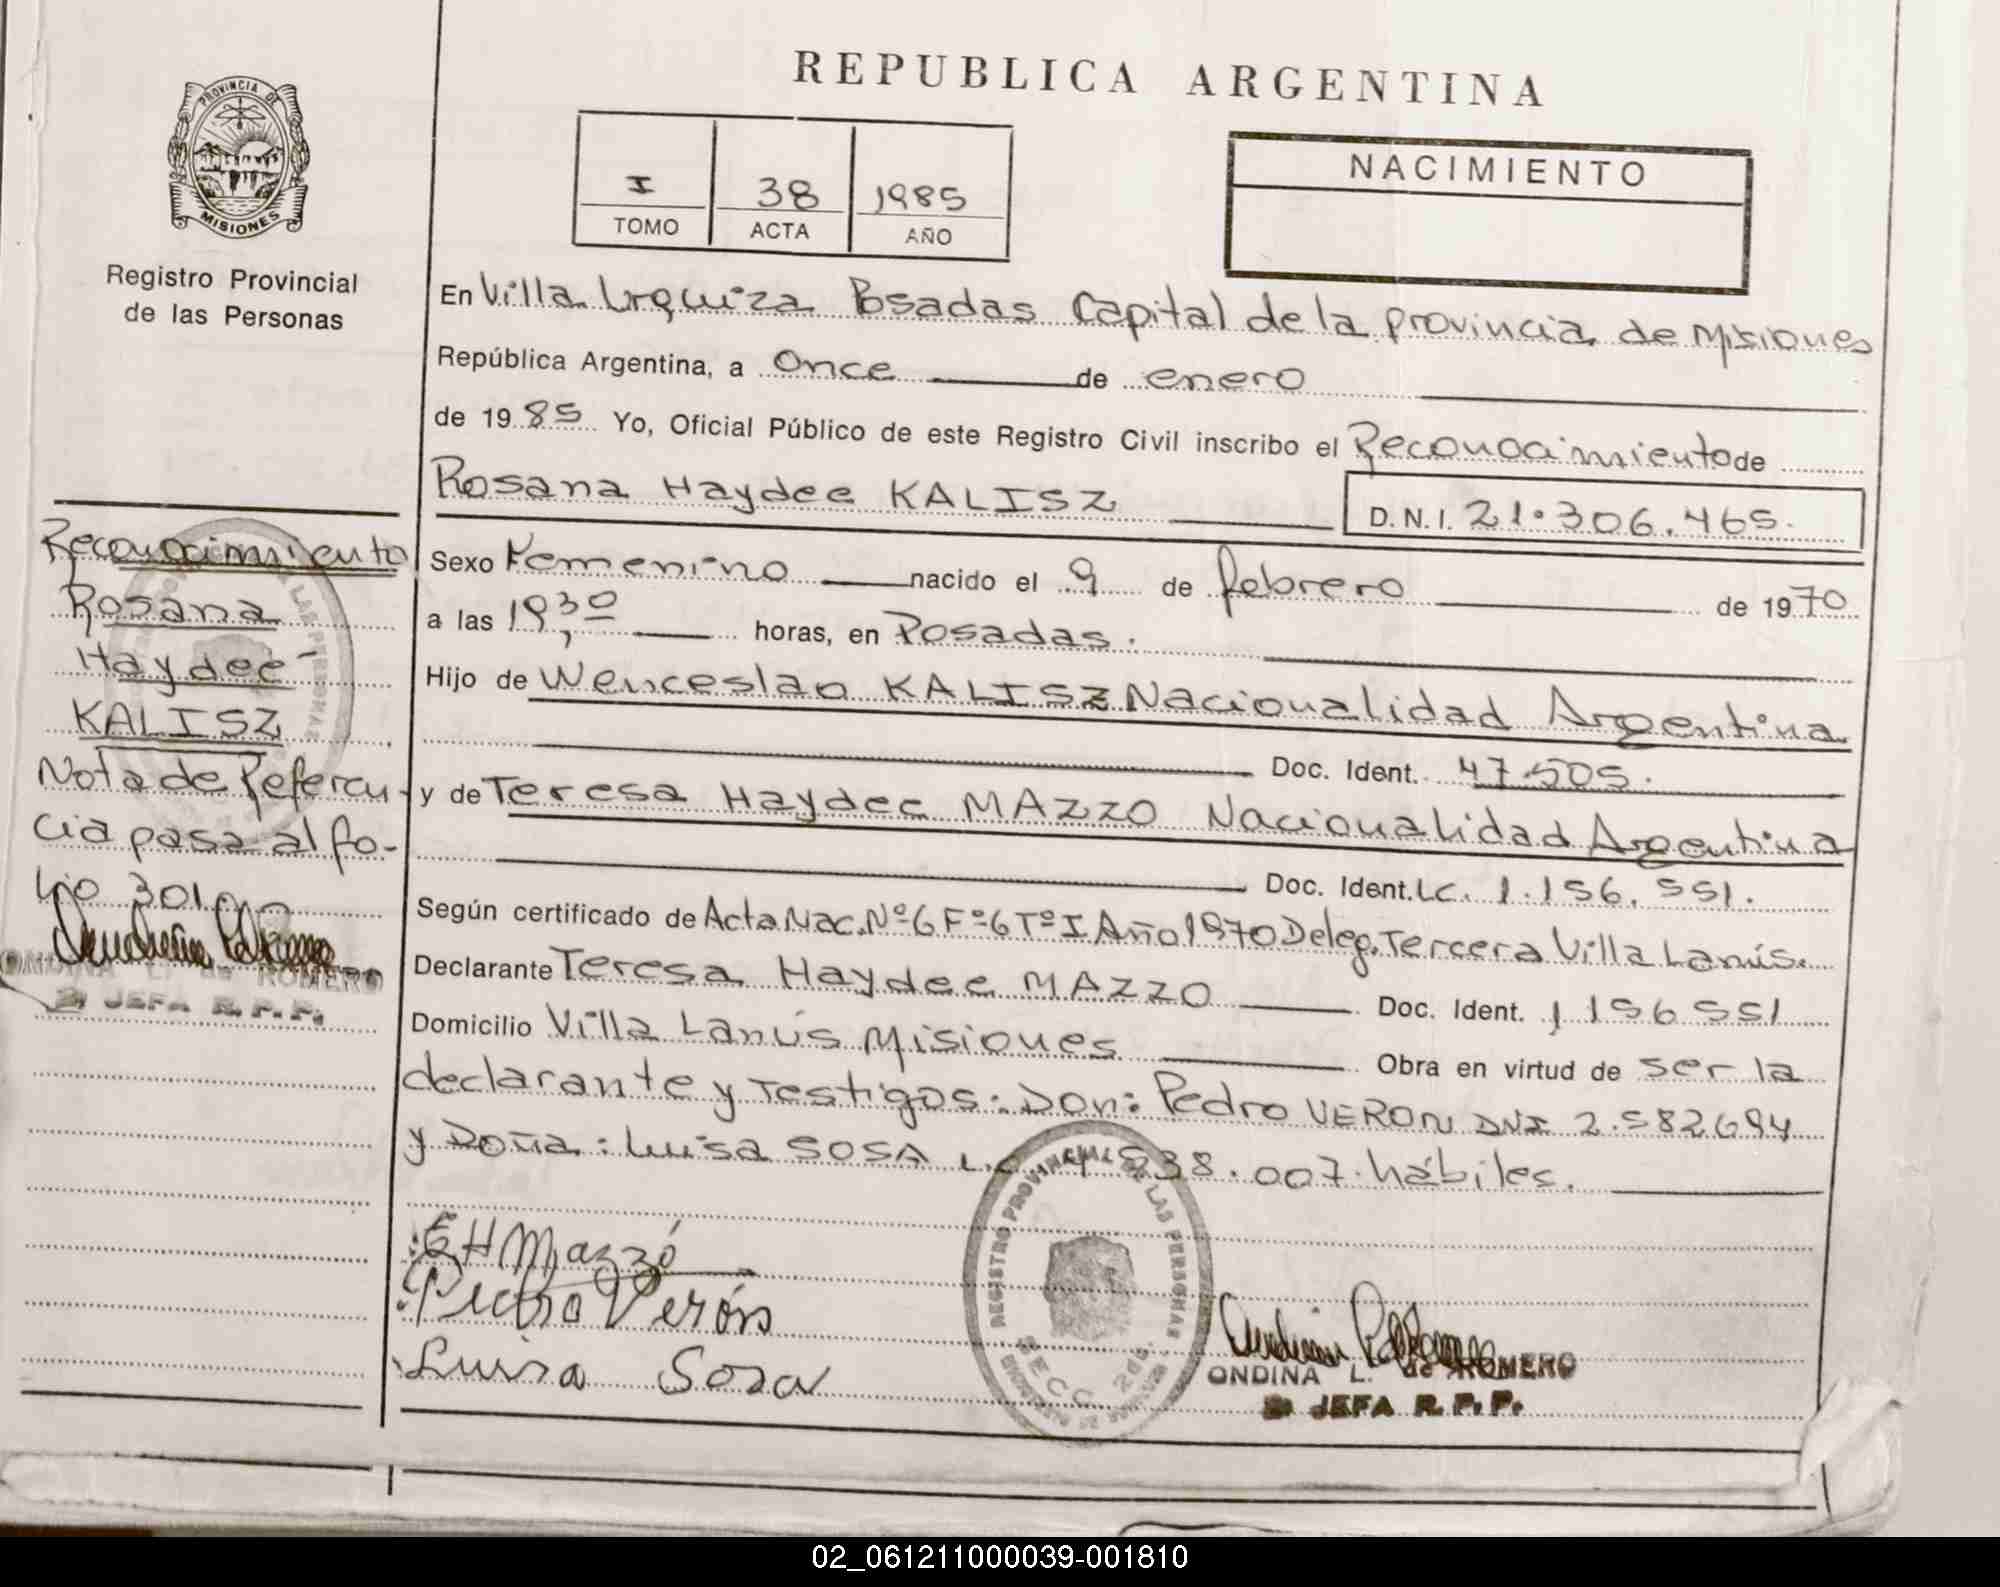 REPUBLICA ARGENTINA
PROVINCIA DE
MISIONES
Registro Provincial
de las Personas
I 38 1985
TOMO ACTA AÑO
NACIMIENTO
En Villa Urquiza Posadas Capital de la provincia de Misiones
República Argentina, a Once de enero
de 1985 Yo, Oficial Público de este Registro Civil inscribo el Reconocimiento de
Rosana Haydee KALISZ D.N.I. 21.306.465.
Sexo Femenino nacido el 9 de febrero de 1970
a las 19,30 horas, en Posadas.
Hijo de Wenceslao KALISZ Nacionalidad Argentina
Doc. Ident. 47.505.
y de Teresa Haydee MAZZO Nacionalidad Argentina
Doc. Ident. LC. 1.156.551.
Según certificado de Acta Nac. Nº 6 Fº 6 Tº I Año 1970 Deleg. Tercera Villa Lanús.
Declarante Teresa Haydee MAZZO Doc. Ident. 1 156 551
Domicilio Villa Lanús Misiones Obra en virtud de ser la
declarante y Testigos: Don: Pedro VERON DNI 2.582694
y Doña: Luisa SOSA L.C 838.007. hábiles.
Reconocimiento
Rosana
Haydee
KALISZ
Nota de Referen-
cia pasa al fo-
lio 301
ONDINA L. de ROMERO
JEFA R.P.P.
Mazzó
Pedro Verón
Luisa Sosa
REGISTRO PROVINCIAL DE LAS PERSONAS
SECC. 2da.
ONDINA L. de ROMERO
JEFA R.P.P.
02_061211000039-001810